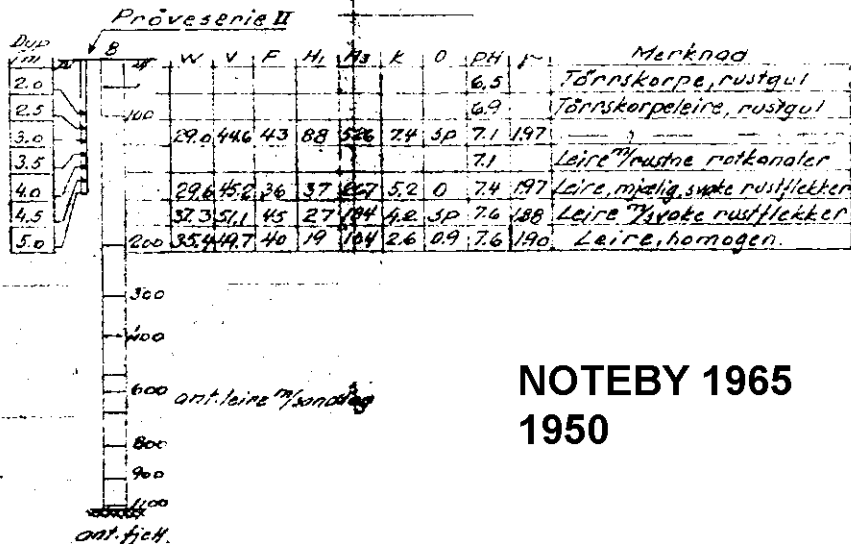 Pröveserie II
Dyp
m 8 W V F H1 H3 K O pH γ Merknad
2.0 6,5 Törrskorpe, rustgul
2.5 6.9 Törrskorpeleire, rustgul
100
3.0 29.0 44.6 43 88 526 7.4 sp 7.1 1.97 — " —
3.5 7.1 Leire m/rustne rotkanaler
4.0 29.6 45.2 36 37 207 5.2 0 7.4 1.97 Leire, mjælig, svake rustflekker
4.5 37.3 51.1 45 27 184 4.2 sp 7.6 1.88 Leire m/svake rustflekker
5.0 200 35.4 49.7 40 19 104 2.6 0.9 7.6 1.90 Leire, homogen.
300
400
600 ant. leire m/sandlag
800
900
1100
ant. fjell.
NOTEBY 1965
1950